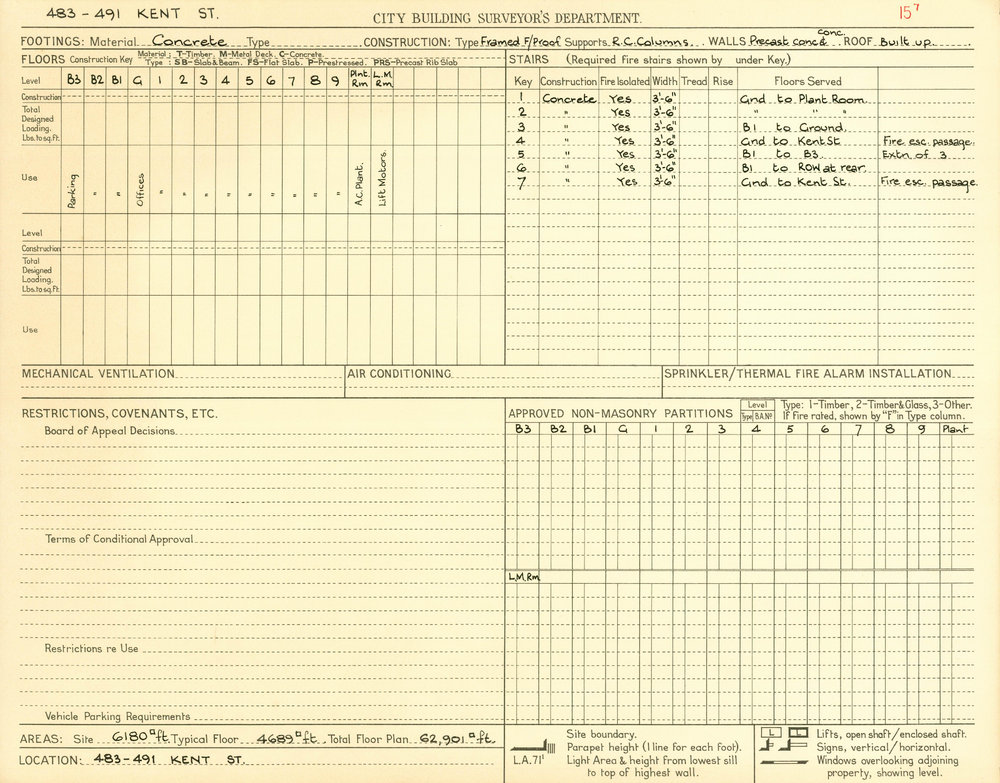 483 - 491 KENT ST.
CITY BUILDING SURVEYOR'S DEPARTMENT.
15⁷
FOOTINGS: Material Concrete Type CONSTRUCTION: Type Framed F/Proof Supports R.C. Columns. WALLS Precast conc& conc. ROOF Built up
FLOORS Construction Key Material : T-Timber. M-Metal Deck. C-Concrete.
Type : SB-Slab & Beam. FS-Flat Slab. P-Prestressed. PRS-Precast Rib Slab
STAIRS (Required Fire stairs shown by under Key.)
Level B3 B2 B1 G 1 2 3 4 5 6 7 8 9 Plnt. Rm L.M. Rm
Key Construction Fire Isolated Width Tread Rise Floors Served
Construction
Total Designed Loading. Lbs. to sq. ft.
Use Parking " " Offices " " " " " " " " " A.C. Plant. Lift Motors.
1 Concrete Yes 3'-6" Gnd to Plant Room.
2 " Yes 3'-6" " " "
3 " Yes 3'-6" B1 to Ground.
4 " Yes 3'-6" Gnd to Kent St Fire esc. passage.
5 " Yes 3'-6" B1 to B3. Extn. of 3.
6 " Yes 3'-6" B1 to ROW at rear.
7 " Yes 3'-6" Gnd to Kent St. Fire esc. passage.
Level
Construction
Total Designed Loading. Lbs. to sq. ft.
Use
MECHANICAL VENTILATION
AIR CONDITIONING
SPRINKLER/THERMAL FIRE ALARM INSTALLATION
RESTRICTIONS, COVENANTS, ETC.
Board of Appeal Decisions.
Terms of Conditional Approval
Restrictions re Use
Vehicle Parking Requirements
APPROVED NON-MASONRY PARTITIONS
Level
Type B.A.Nº
Type: 1-Timber, 2-Timber & Glass, 3-Other.
If Fire rated, shown by "F" in Type column.
B3 B2 B1 G 1 2 3 4 5 6 7 8 9 Plant
L.M.Rm
AREAS: Site 6180 □ft. Typical Floor 4689 □ft. Total Floor Plan 62,901 □ft.
LOCATION: 483-491 KENT ST.
Site boundary.
Parapet height (1 line for each foot).
L.A. 71' Light Area & height from lowest sill
to top of highest wall.
L L Lifts, open shaft/enclosed shaft.
Signs, vertical/horizontal.
Windows overlooking adjoining
property, showing level.